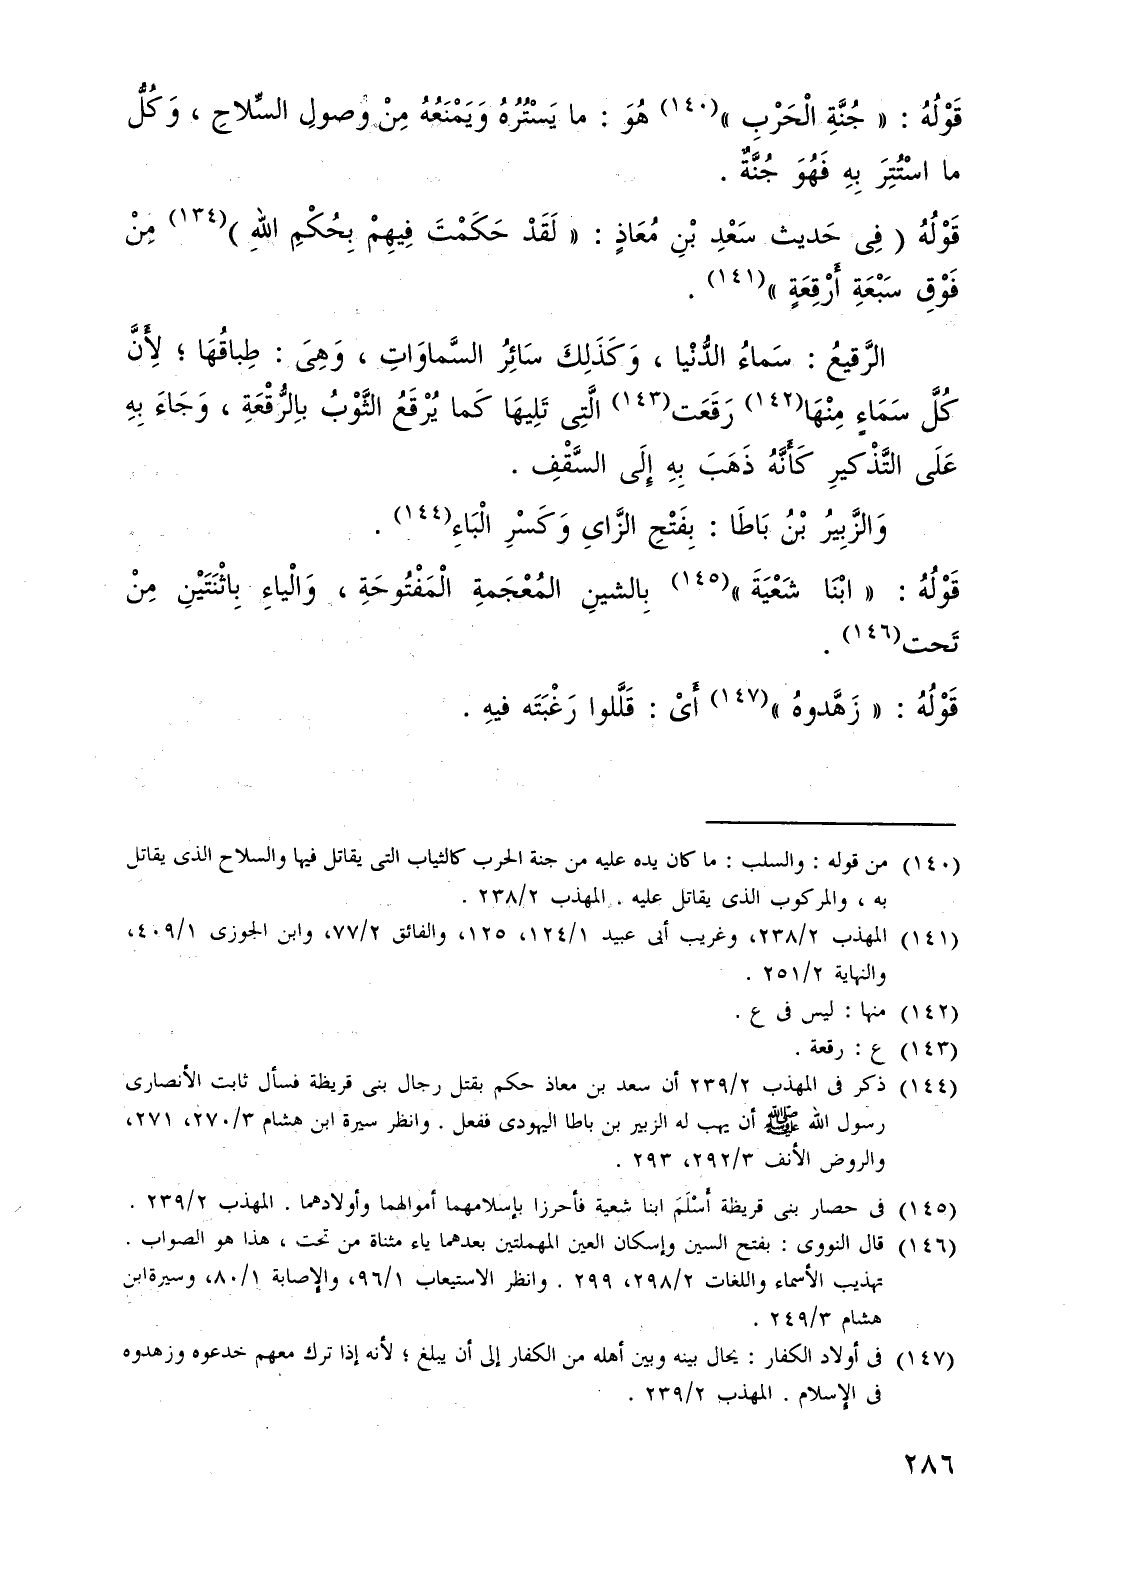 قَوْلُهُ : « جُنَّةِ الْحَرْبِ »(١٤٠) هُوَ : ما يَسْتُرُهُ وَيَمْنَعُهُ مِنْ وُصولِ السِّلاحِ ، وَكُلُّ
ما اسْتُتِرَ بِهِ فَهُوَ جُنَّةٌ .
قَوْلُهُ ( فِى حَديث سَعْدِ بْنِ مُعَاذٍ : « لَقَدْ حَكَمْتَ فِيهِمْ بِحُكْمِ اللهِ )(١٣٤) مِنْ
فَوْقِ سَبْعَةِ أَرْقِعَةٍ »(١٤١) .
الرَّقيعُ : سَماءُ الدُّنْيا ، وَكَذَلِكَ سَائِرُ السَّماوَاتِ ، وَهِىَ : طِباقُهَا ؛ لِأَنَّ
كُلَّ سَمَاءٍ مِنْهَا(١٤٢) رَقَعَت(١٤٣) الَّتِى تَلِيهَا كَما يُرْقَعُ الثَّوْبُ بِالرُّقْعَةِ ، وَجَاءَ بِهِ
عَلَى التَّذْكيرِ كَأَنَّهُ ذَهَبَ بِهِ إِلَى السَّقْفِ .
وَالزَّبِيرُ بْنُ بَاطَا : بِفَتْحِ الزَّاىِ وَكَسْرِ الْبَاءِ(١٤٤) .
قَوْلُهُ : « ابْنَا شَعْيَةَ »(١٤٥) بِالشينِ المُعْجَمةِ الْمَفْتُوحَةِ ، وَالْياءِ بِاثْنَتَيْنِ مِنْ
تَحت(١٤٦) .
قَوْلُهُ : « زَهَّدوهُ »(١٤٧) أَىْ : قَلَّلوا رَغْبَتَه فيهِ .
(١٤٠) من قوله : والسلب : ما كان يده عليه من جنة الحرب كالثياب التى يقاتل فيها والسلاح الذى يقاتل
به ، والمركوب الذى يقاتل عليه . المهذب ٢٣٨/٢ .
(١٤١) المهذب ٢٣٨/٢، وغريب أبى عبيد ١٢٤/١، ١٢٥، والفائق ٧٧/٢، وابن الجوزى ٤٠٩/١،
والنهاية ٢٥١/٢ .
(١٤٢) منها : ليس فى ع .
(١٤٣) ع : رقعة .
(١٤٤) ذكر فى المهذب ٢٣٩/٢ أن سعد بن معاذ حكم بقتل رجال بنى قريظة فسأل ثابت الأنصارى
رسول الله ﷺ أن يهب له الزبير بن باطا اليهودى ففعل . وانظر سيرة ابن هشام ٢٧٠/٣، ٢٧١،
والروض الأنف ٢٩٢/٣، ٢٩٣ .
(١٤٥) فى حصار بنى قريظة أَسْلَمَ ابنا شعية فأحرزا بإسلامهما أموالهما وأولادهما . المهذب ٢٣٩/٢ .
(١٤٦) قال النووى : بفتح السين وإسكان العين المهملتين بعدهما ياء مثناة من تحت ، هذا هو الصواب .
تهذيب الأسماء واللغات ٢٩٨/٢، ٢٩٩ . وانظر الاستيعاب ٩٦/١، والإصابة ٨٠/١، وسيرة ابن
هشام ٢٤٩/٣ .
(١٤٧) فى أولاد الكفار : يحال بينه وبين أهله من الكفار إلى أن يبلغ ؛ لأنه إذا ترك معهم خدعوه وزهدوه
فى الإسلام . المهذب ٢٣٩/٢ .
٢٨٦